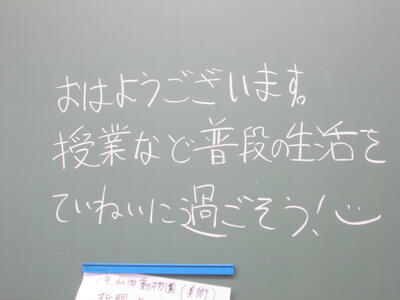 おはようございます。
授業など普段の生活を
ていねいに過ごそう!
山田動物園(美術)